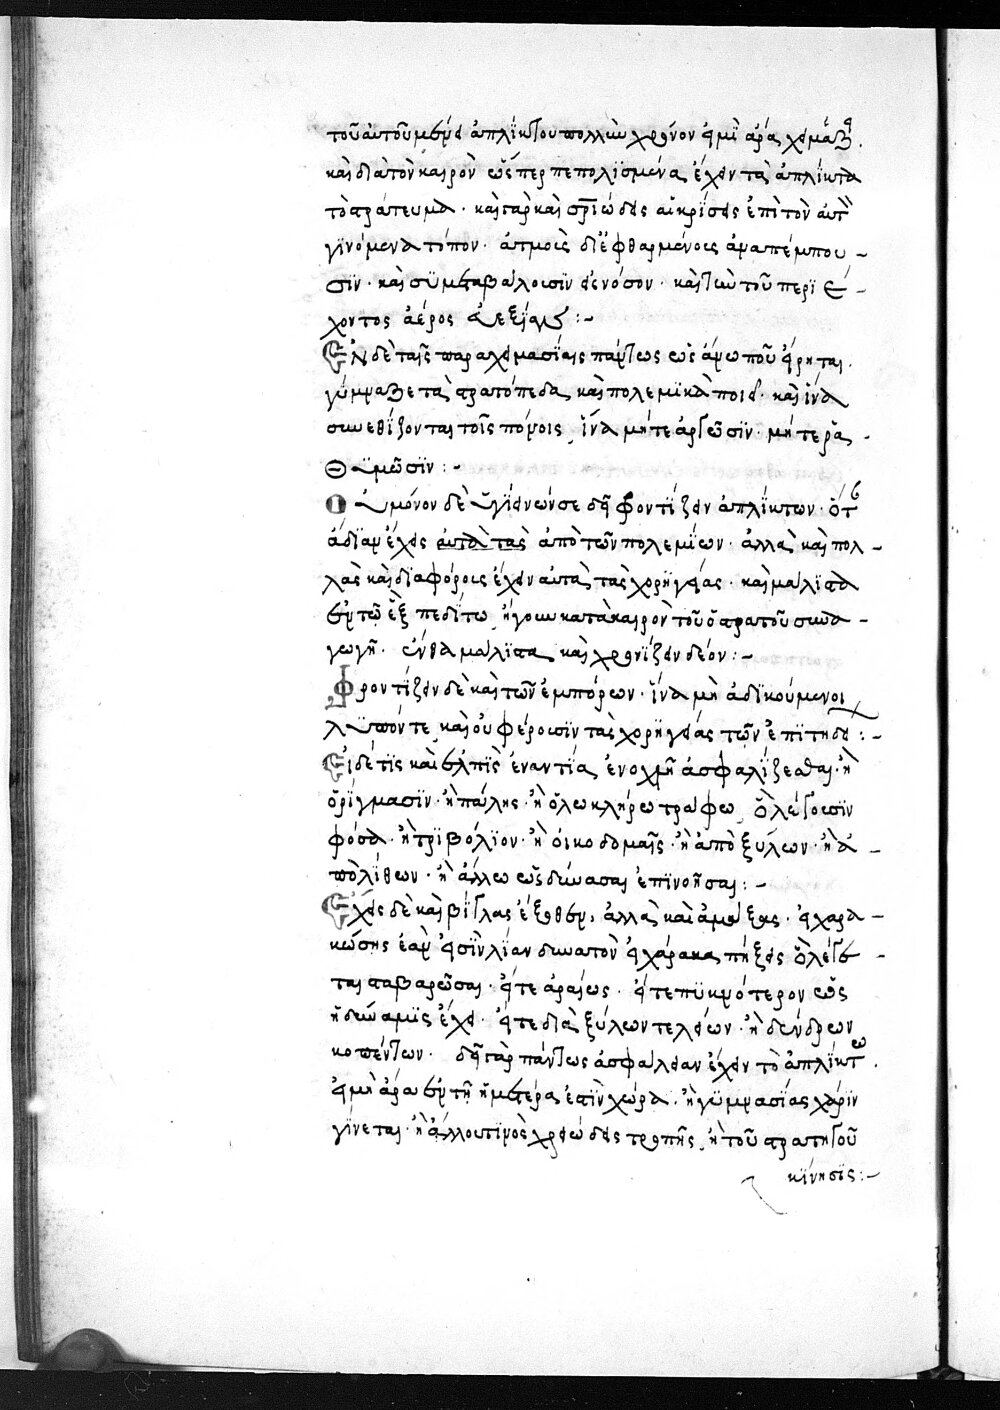 τοῦ αὐτοῦ μένειν ἀπλίκτου πολλὺν χρόνον εἰ μὴ ἄρα χειμάζῃ.
καὶ διὰ τὸν καιρὸν ὥσπερ πεπολισμένα ἔχειν τὰ ἄπλικτα
τὸ στράτευμα · καὶ γὰρ καὶ σηπεώδεις αἱ κρίσεις ἐπὶ τὸν αὐτὸν
γινόμεναι τόπον · ἀτμοῖς διεφθαρμένοις ἀναπέμπου -
σιν · καὶ συμμεταβάλουσιν εἰς νόσον · καὶ τὴν τοῦ περιέ -
χοντος ἀέρος δεξίαν :-
Ἐν δὲ ταῖς παραχειμασίαις πάντως ὡς ἄνω που εἴρηται ·
γύμναζε τὰ στρατόπεδα, καὶ πολεμικὰ ποίει · καὶ ἵνα
συνεθίζονται τοῖς πόνοις, ἵνα μήτε ἀργῶσιν · μήτε ῥᾳ -
θυμῶσιν :-
Οὐ μόνον δὲ ὑγιεινῶν σε δεῖ φροντίζειν ἀπλίκτων · ὅταν
ἄδειαν ἔχεις αὐτὰ τὰς ἀπὸ τῶν πολεμίων · ἀλλὰ καὶ πολ -
λὰς καὶ διαφόροις ἔχειν αὐτὰς τὰς χορηγίας · καὶ μάλιστα
ἐν τῷ ἐξπεδίτῳ ἤγουν κατὰ καιρὸν τοῦ στρατοῦ συνα -
γωγῇ · ἔνθα μάλιστα καὶ χρονίζειν δέον :-
Φροντίζειν δὲ καὶ τῶν ἐμπόρων · ἵνα μὴ ἀδικούμενοι
λυπόντε καὶ οὐ φέρουσιν τὰς χορηγίας τῶν ἐπιτηδεί :-
Εἰ δέ τις καὶ ἐλπὶς ἐναντία, ἐν ὀχμῇ ἀσφαλίζεσθαι · ἢ
ὀρίγμασιν · ἢ πάλης · ἢ ὅλῳ κλήρῳ τράφῳ ὃ λέγουσιν
φόσα · ἢ τριβόλιον · ἢ οἰκοδομαῖς · ἢ ἀπὸ ξύλων · ἢ ἀ -
πὸ λίθων · ἢ ἄλλῳ ὡς δύνασαι ἐπινοῆσαι :-
Ἔχεις δὲ καὶ βίγλας ἔξωθεν, ἀλλὰ καὶ ἀμάξας · εἰ χαρα -
κώσης ἐὰν εἰσὶν λίαν δυνατὸν εἰ χάρακα πήξεις ὃ λέγε -
ται σταβαρῶσαι · εἴτε ἀραίως · εἴτε πυκνότερον ὡς
ἡ δύναμις ἔχει · εἴτε διὰ ξύλων τελείων · ἢ δένδρων
κοπέντων · δεῖ γὰρ πάντως ἀσφάλειαν ἔχειν τὸ ἄπλικτω.
εἰ μὴ ἄρα ἐν τῇ ἡμετέρα ἐστὶν χώρα · ἢ γυμνασίας χάριν
γίνεται · ἢ ἄλλου τινὸς χρειώδεις τροπῆς, ἢ τοῦ στρατηγοῦ
κίνησις :-